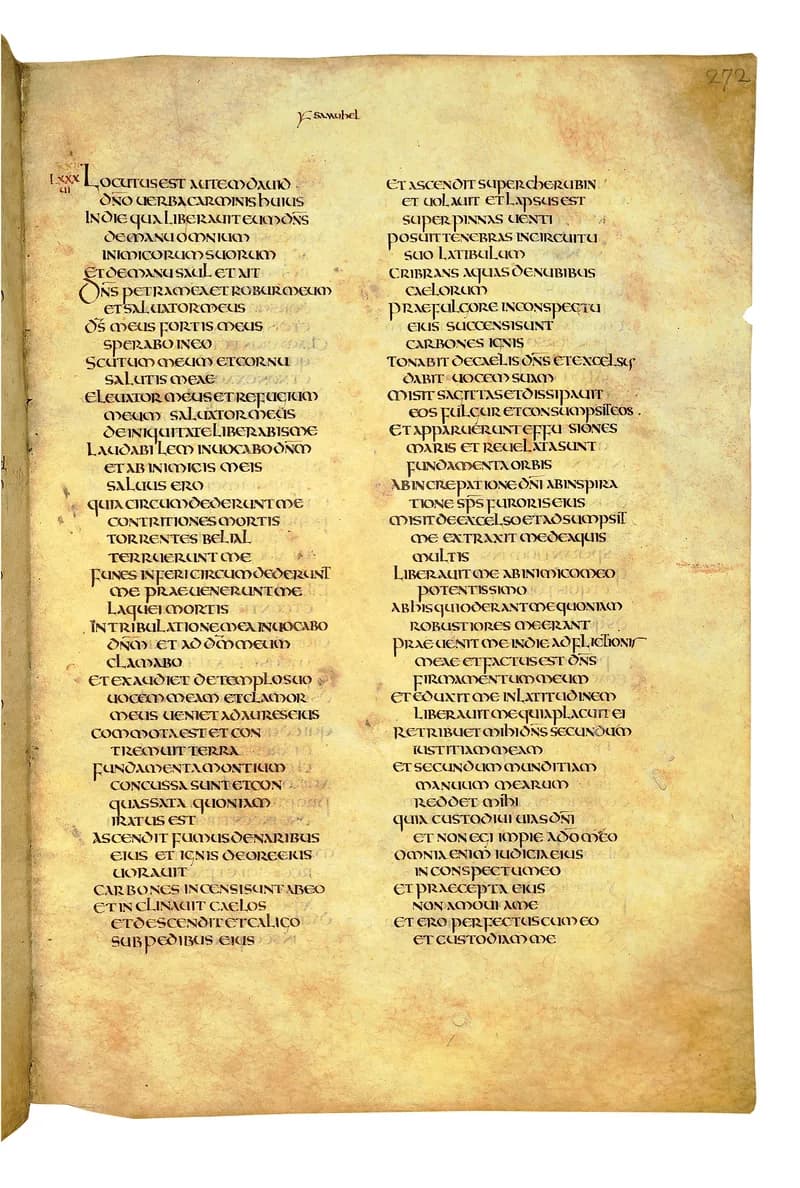 272
samuhel
LXXX
UI
LOCUTUS EST AUTEM DAUID
DN̄O UERBA CARMINIS HUIUS
IN DIE QUA LIBERAUIT EUM DN̄S
DE MANU OMNIUM
INIMICORUM SUORUM
ET DE MANU SAUL ET AIT
DN̄S PETRA MEA ET ROBUR MEUM
ET SALUATOR MEUS
D̄S MEUS FORTIS MEUS
SPERABO IN EO
SCUTUM MEUM ET CORNU
SALUTIS MEAE
ELEUATOR MEUS ET REFUGIUM
MEUM SALUATOR MEUS
DE INIQUITATE LIBERABIS ME
LAUDABILEM INUOCABO DN̄M
ET AB INIMICIS MEIS
SALUUS ERO
QUIA CIRCUMDEDERUNT ME
CONTRITIONES MORTIS
TORRENTES BELIAL
TERRUERUNT ME
FUNES INFERI CIRCUMDEDERUNT
ME PRAEUENERUNT ME
LAQUEI MORTIS
IN TRIBULATIONE MEA INUOCABO
DN̄M ET AD D̄M MEUM
CLAMABO
ET EXAUDIET DE TEMPLO SUO
UOCEM MEAM ET CLAMOR
MEUS UENIET AD AURES EIUS
COMMOTA EST ET CON
TREMUIT TERRA
FUNDAMENTA MONTIUM
CONCUSSA SUNT ET CON
QUASSATA QUONIAM
IRATUS EST
ASCENDIT FUMUS DE NARIBUS
EIUS ET IGNIS DE ORE EIUS
UORAUIT
CARBONES INCENSI SUNT AB EO
ET INCLINAUIT CAELOS
ET DESCENDIT ET CALIGO
SUB PEDIBUS EIUS
ET ASCENDIT SUPER CHERUBIN
ET UOLAUIT ET LAPSUS EST
SUPER PINNAS UENTI
POSUIT TENEBRAS IN CIRCUITU
SUO LATIBULUM
CRIBRANS AQUAS DE NUBIBUS
CAELORUM
PRAE FULGORE IN CONSPECTU
EIUS SUCCENSI SUNT
CARBONES IGNIS
TONABIT DE CAELIS DN̄S ET EXCELSUS
DABIT UOCEM SUAM
MISIT SAGITTAS ET DISSIPAUIT
EOS FULGUR ET CONSUMPSIT EOS
ET APPARUERUNT EFFUSIONES
MARIS ET REUELATA SUNT
FUNDAMENTA ORBIS
AB INCREPATIONE DN̄I AB INSPIRA
TIONE SP̄S FURORIS EIUS
MISIT DE EXCELSO ET ADSUMPSIT
ME EXTRAXIT ME DE AQUIS
MULTIS
LIBERAUIT ME AB INIMICO MEO
POTENTISSIMO
AB HIS QUI ODERANT ME QUONIAM
ROBUSTIORES ME ERANT
PRAEUENIT ME IN DIE ADFLICTIONIS
MEAE ET FACTUS EST DN̄S
FIRMAMENTUM MEUM
ET EDUXIT ME IN LATITUDINEM
LIBERAUIT ME QUIA PLACUIT EI
RETRIBUET MIHI DN̄S SECUNDUM
IUSTITIAM MEAM
ET SECUNDUM MUNDITIAM
MANUUM MEARUM
REDDET MIHI
QUIA CUSTODIUI UIAS DN̄I
ET NON EGI IMPIE A D̄O MEO
OMNIA ENIM IUDICIA EIUS
IN CONSPECTU MEO
ET PRAECEPTA EIUS
NON AMOUI A ME
ET ERO PERFECTUS CUM EO
ET CUSTODIAM ME